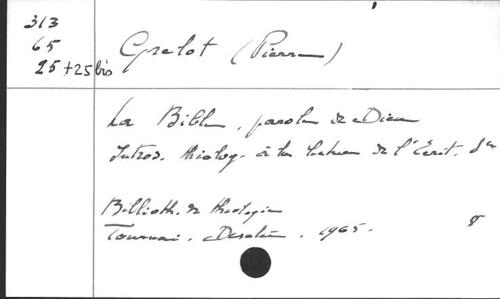 313
65
25+25 bis
Grelot (Pierre)
La Bible, parole de Dieu
Introd. théolog. à la lecture de l'Ecrit. Ste
Biblioth. de théologie
Tournai, Desclée, 1965.